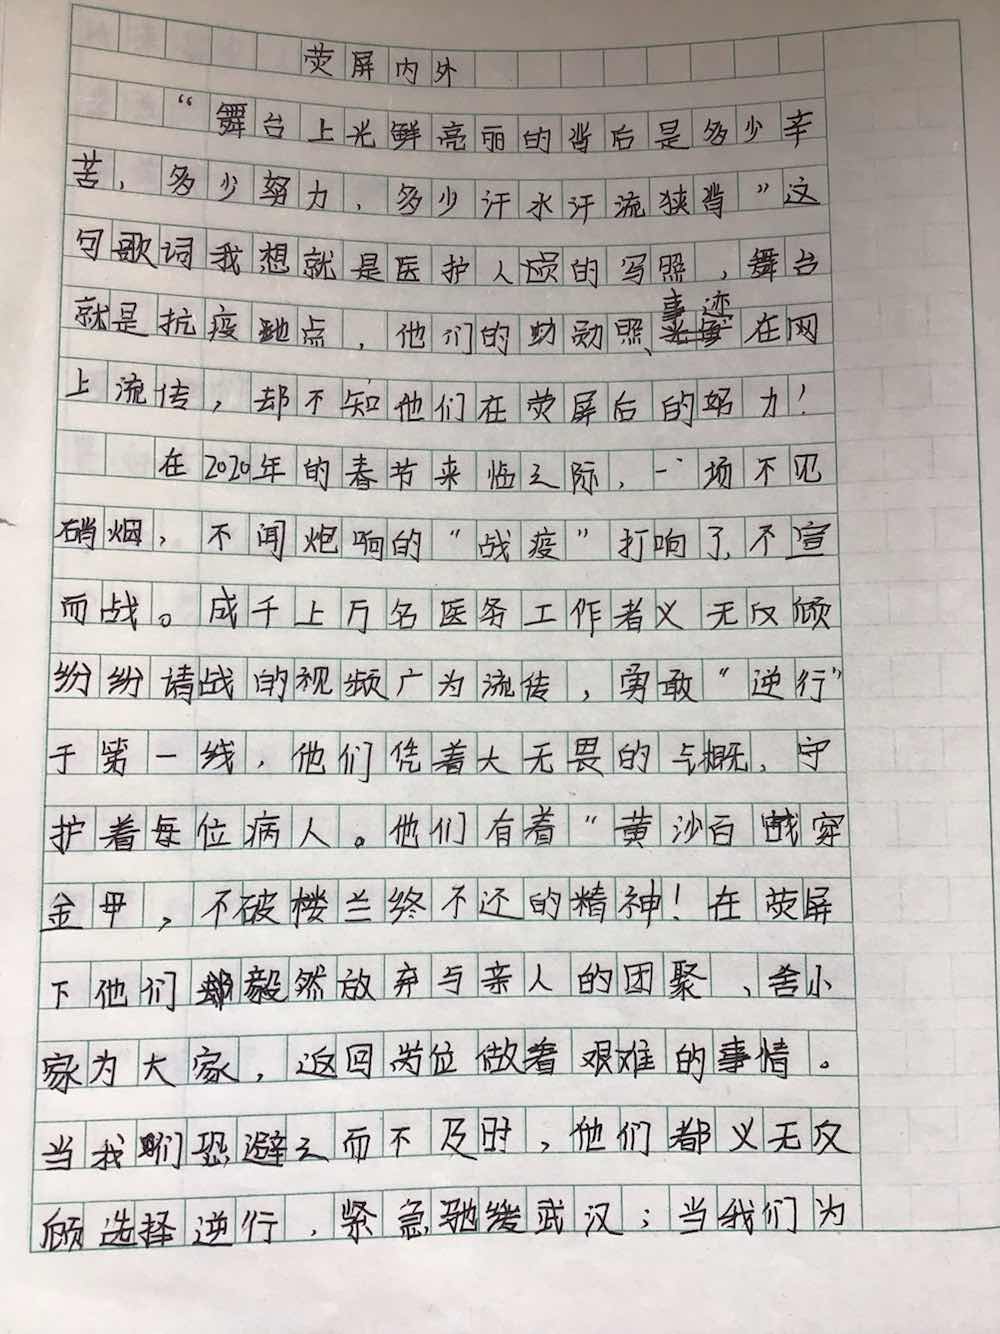 荧屏内外
“舞台上光鲜亮丽的背后是多少辛
苦，多少努力，多少汗水汗流狭背”这
句歌词我想就是医护人员的写照，舞台
就是抗疫地点，他们的功勋照、事迹在网
上流传，却不知他们在荧屏后的努力！
在2020年的春节来临之际，一场不见
硝烟，不闻炮响的“战疫”打响了，不宣
而战。成千上万名医务工作者义无反顾
纷纷请战的视频广为流传，勇敢“逆行”
于第一线，他们凭着大无畏的气概，守
护着每位病人。他们有着“黄沙百战穿
金甲，不破楼兰终不还的精神！在荧屏
下他们却毅然放弃与亲人的团聚、舍小
家为大家，返回岗位做着艰难的事情。
当我们恐避之而不及时，他们都义无反
顾选择逆行，紧急驰援武汉；当我们为